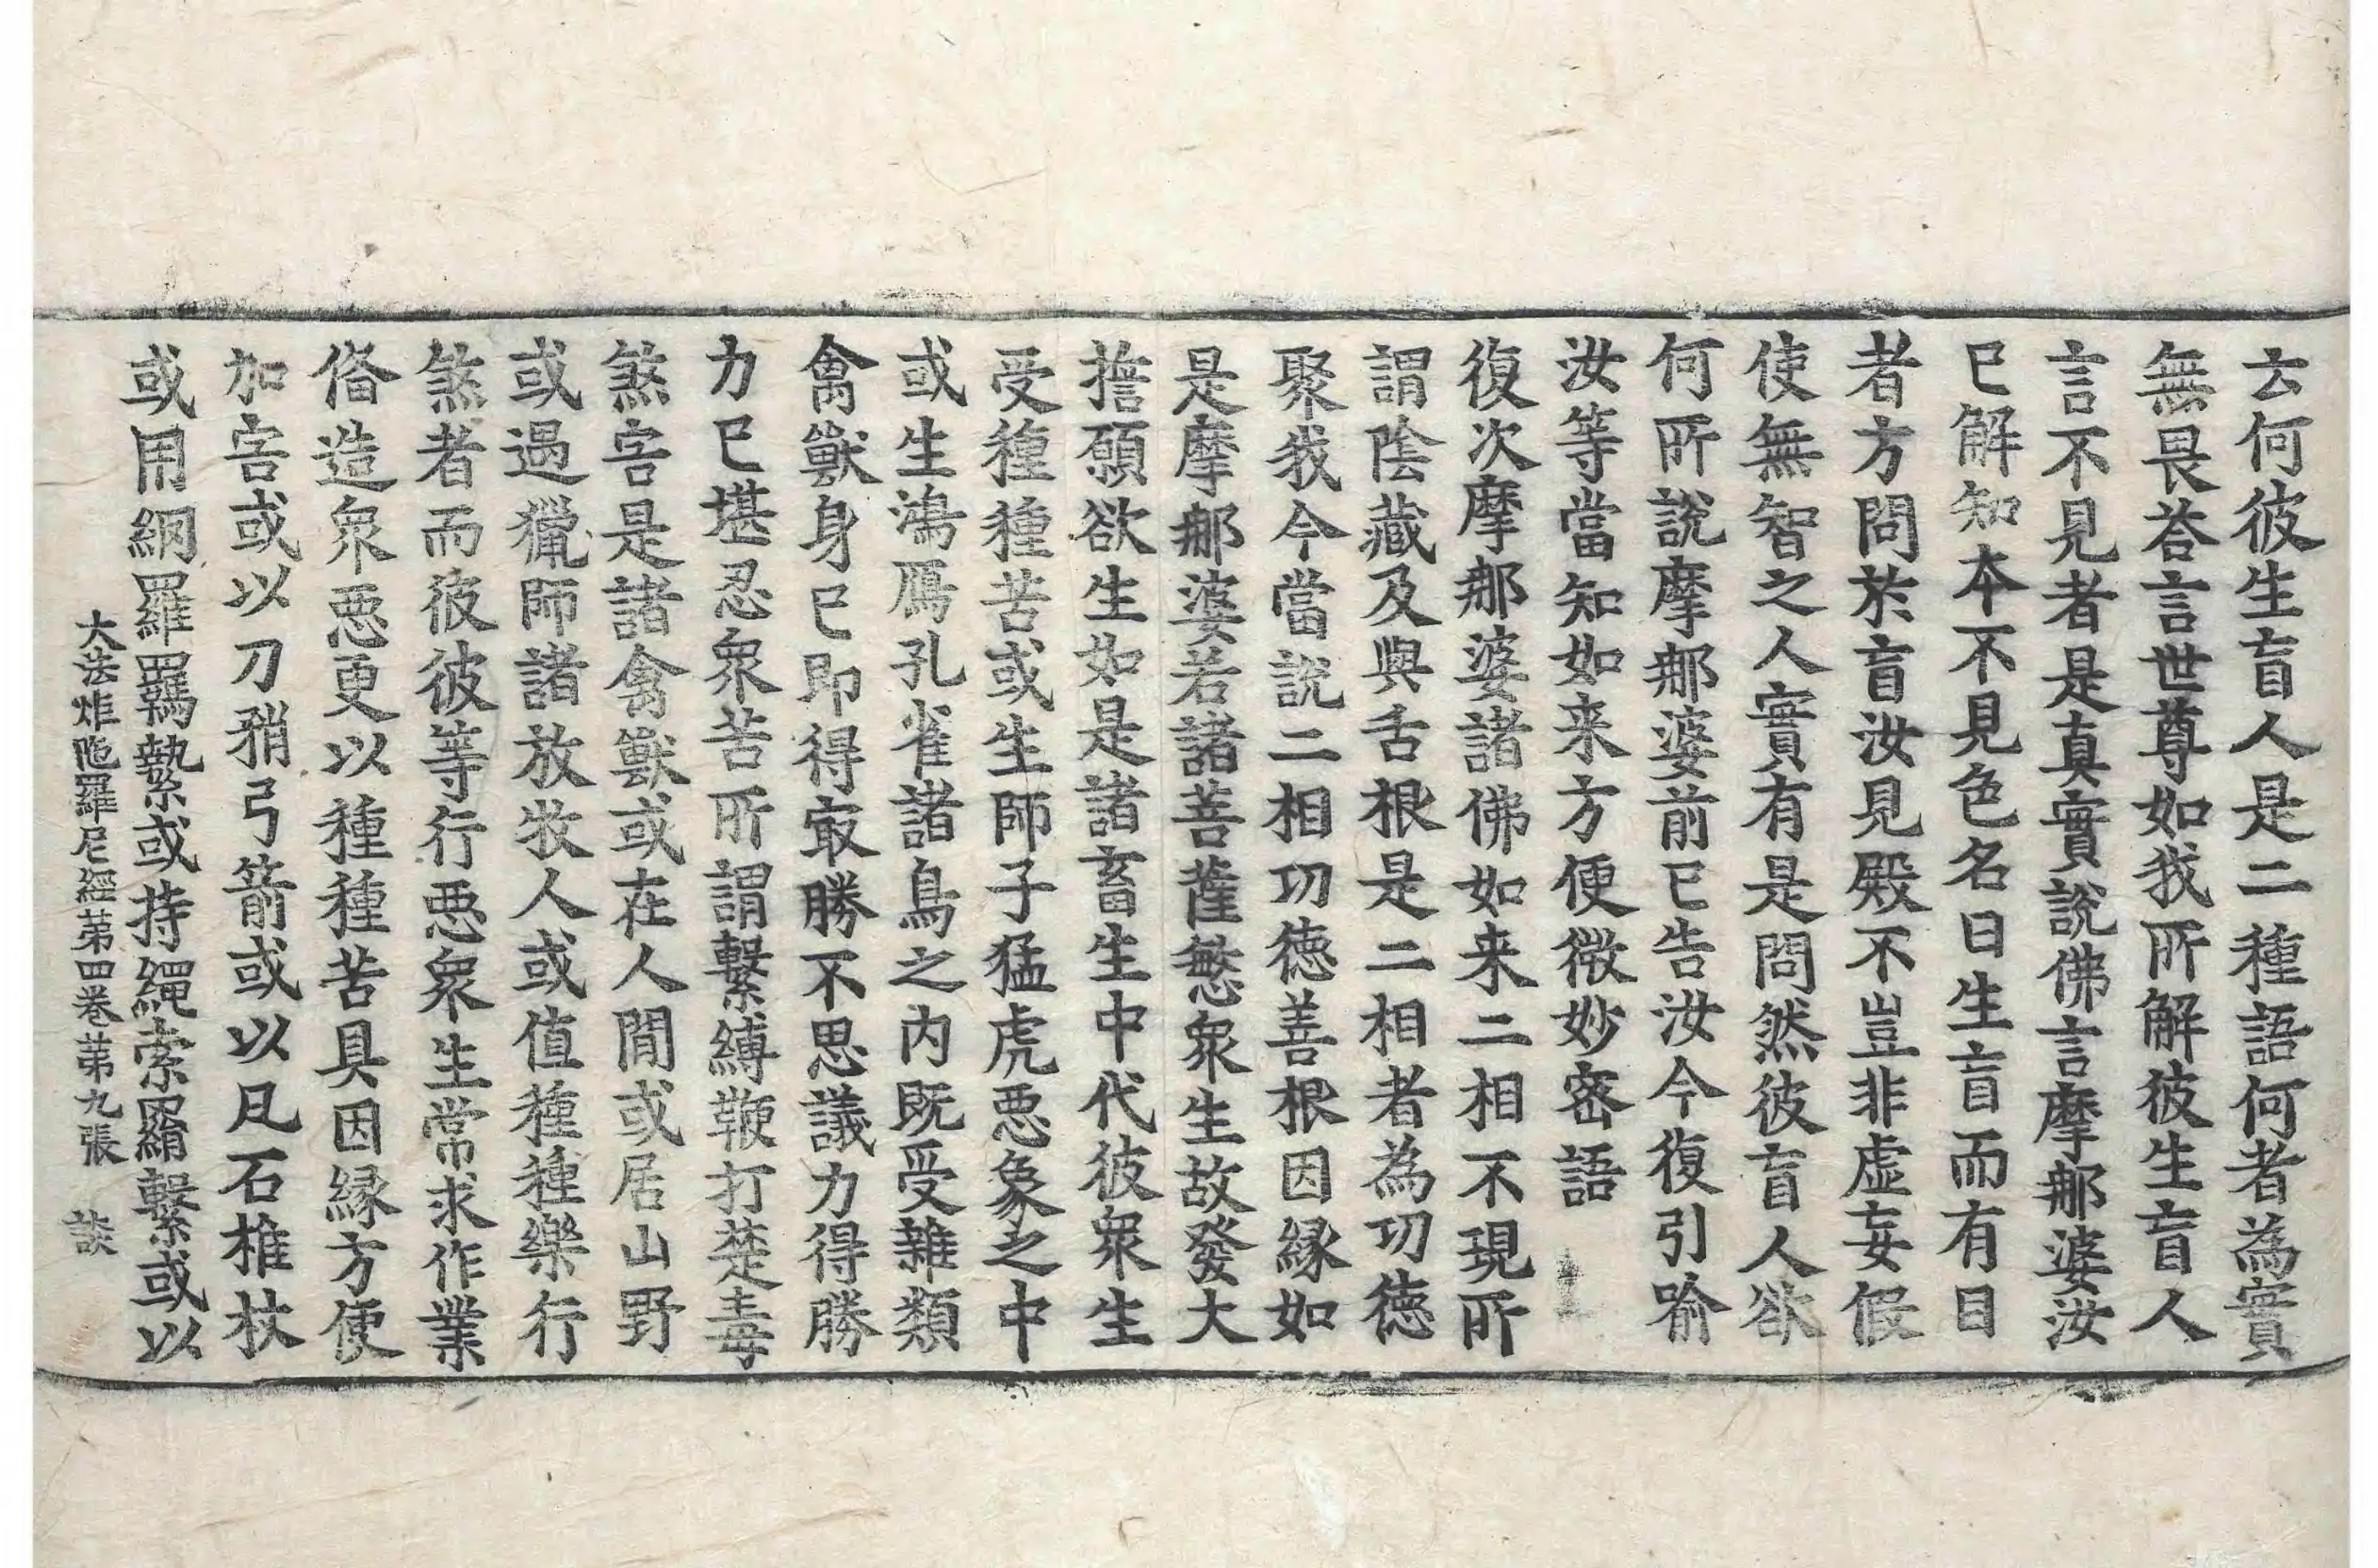 云何彼生盲人是二種語何者為實
無畏荅言世尊如我所解彼生盲人
言不見者是真實說佛言摩那婆汝
已解知本不見色名曰生盲而有目
者方問於盲汝見殿不豈非虛妄假
使無智之人實有是問然彼盲人欲
何所說摩那婆前已告汝今復引喻
汝等當知如来方便微妙密語
復次摩那婆諸佛如来二相不現所
謂陰藏及與舌根是二相者為功徳
聚我今當說二相功徳善根因縁如
是摩那婆若諸菩薩愍衆生故發大
擔願欲生如是諸畜生中代彼衆生
受種種苦或生師子猛虎惡象之中
或生鴻鴈孔雀諸鳥之內既受雜類
禽獸身已即得㝡勝不思議力得勝
力已堪忍衆苦所謂繫縛鞭打楚毒
煞害是諸禽獸或在人閒或居山野
或遇獵師諸放牧人或值種種樂行
煞者而彼彼等行惡衆生常求作業
俻造衆惡更以種種苦具因縁方便
加害或以刀矟弓箭或以瓦石椎杖
或用網羅羈縶或持繩索罥繫或以
大法炬陁羅尼經第四卷第九張 談